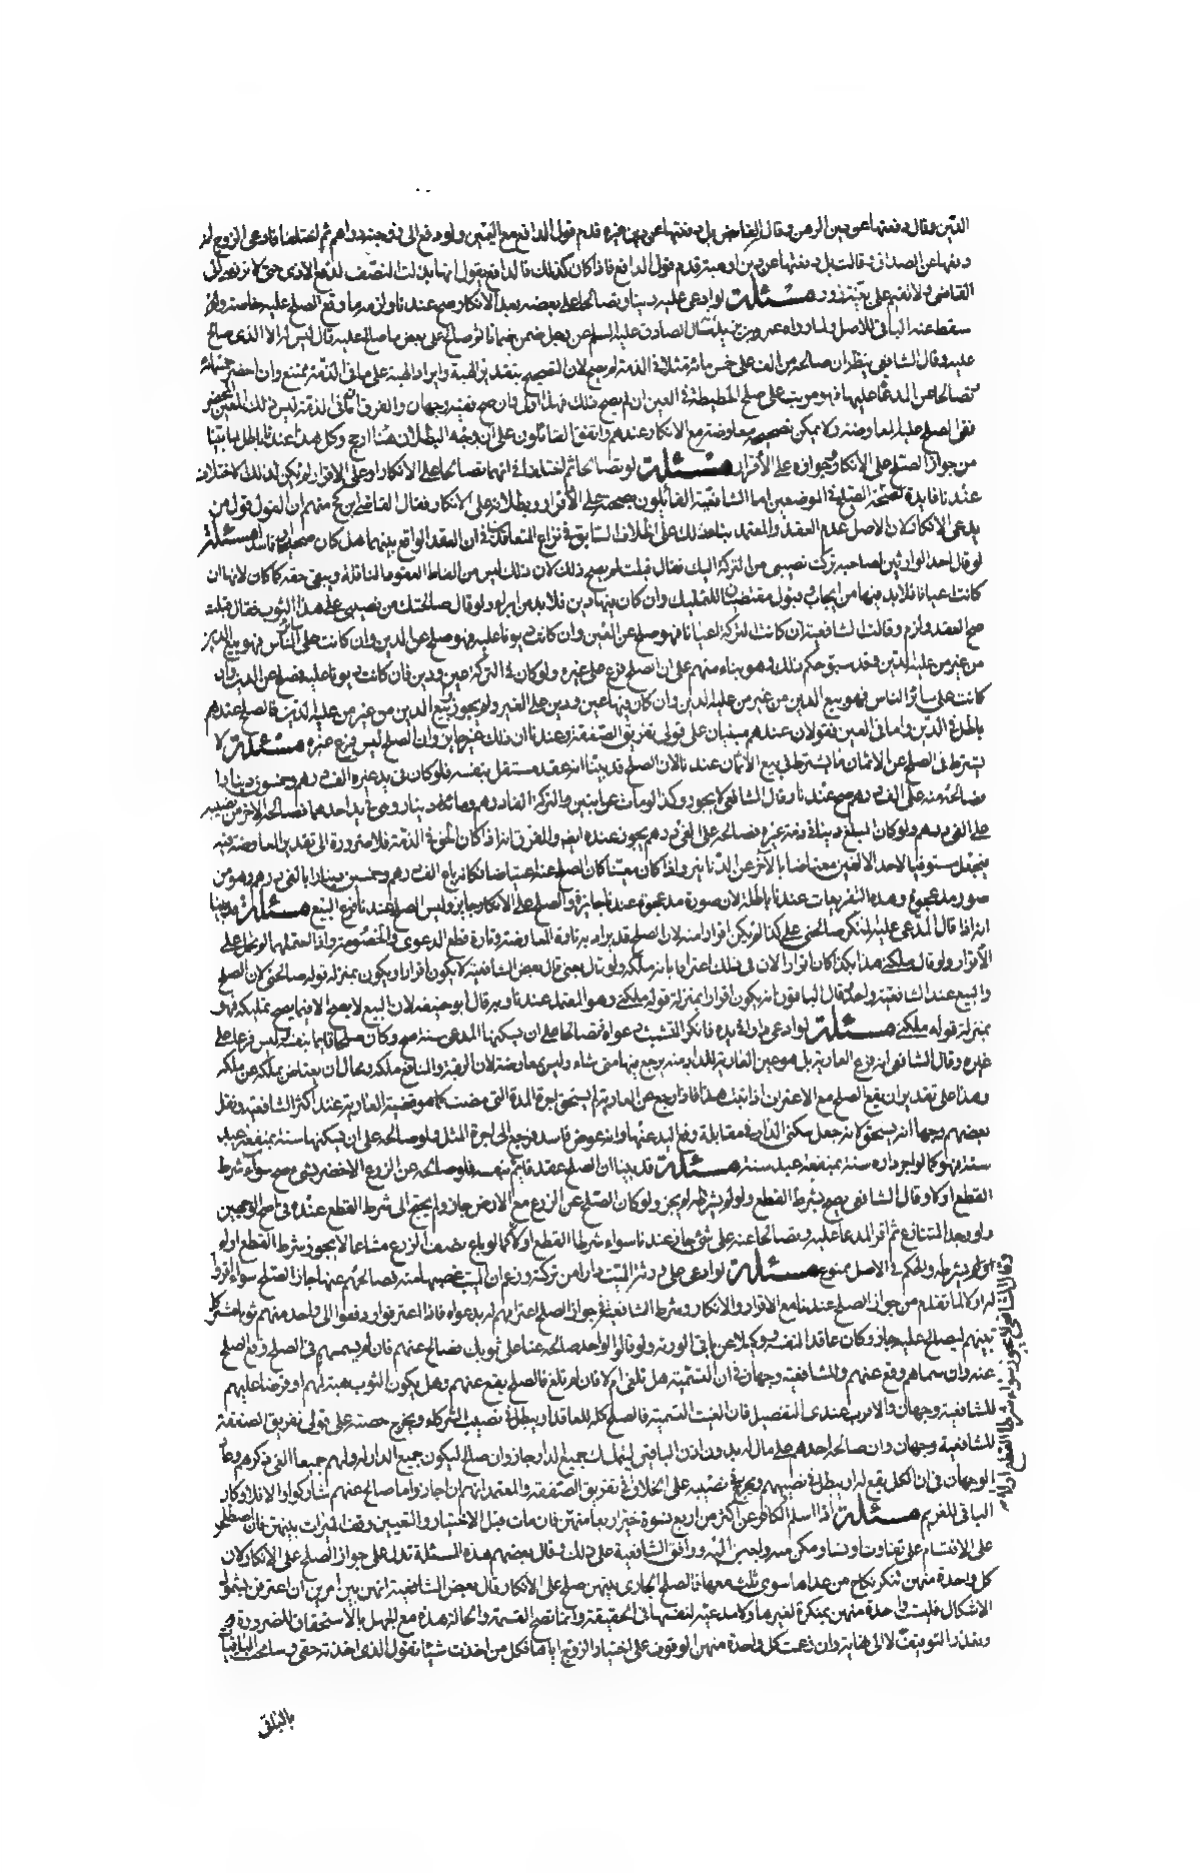 الدين وقال دفعتها عن دين الرهن وقال القابض بل دفعتها عن دين غيره قدم قول الدافع مع اليمين ولو دفع الى زوجته دراهم ثم اختلفا فادعى الزوج انه
دفعها عن الصداق وقالت بل دفعتها عن دين او هبة قدم قول الدافع فاذا كان كذلك فالدافع يقول انما بذلت النصف لدفع الاذى حتى لا
القاضى ولا نقيم على بقية زور مسئلة لو ادعى عليه دينا وتصالحا على بعضه بعد الانكار صح عندنا ولزمه ما وقع الصلح عليه خاصة
سقط عنه الباقى للاصل ولما رواه عمر بن يزيد سئال الصادق عليه السلم عن رجل ضمن ضمانا ثم صالح على بعض ما صالح عليه قال ليس له الا الذى صالح
عليه وقال الشافعى ينظر ان صالحه من الف على خمس مائة مثلا فى الذمة لم يصح لان التصحيح بتقدير الهبة وايراد الهبة على ما فى الذمة ممتنع وان احضر خمسمائة
وتصالحا من المدعا عليها فهو مرتب على صلح الحطيطة فى العين ان لم يصح ذلك فهذا اولى وان صح ففيه وجهان والفرق ان ما فى الذمة ليس ذلك المعين المحضر
ففى الصلح عليه معاوضة ولا يمكن تصحيحه معاوضة مع الانكار عندهم واتفق القائلون على ان وجه البطلان هنا ارجح وكل هذا عندنا باطل لما بينا
من جواز الصلح على الانكار وجوازه على الاقرار مسئلة لو تصالحا ثم اختلفا فى انهما تصالحا على الانكار او على الاقرار لم يكن لذلك الاختلاف
عندنا فايدة لصحة الصلح فى الموضعين اما الشافعية القائلون بصحته على الاقرار وبطلانه على الانكار فقال القاضى ابن كج منهم ان القول قول من
يدعى الانكار لان الاصل عدم العقد والمعتمد بناء ذلك على الخلاف السابق فى نزاع المتعاقدين فى ان العقد الواقع بينهما هل كان صحيحا او فاسدا مسئلة
لو قال احد الوارثين لصاحبه تركت نصيبى من التركة اليك فقال قبلت لم يصح ذلك لان ذلك ليس من الفاظ العقود الناقلة ويبقى حقه كما كان لانها ان
كانت عيانا فلابد فيها من ايجاب وقبول مقتضيان للتمليك وان كان فيها دين فلابد من ابراء ولو قال صالحتك من نصيبى على هذا الثوب فقال قبلت
صح العقد ولزم وقالت الشافعية ان كانت التركة اعيانا فهو صلح عن العين وان كانت ديونا عليه فهو صلح عن الدين وان كانت على الناس فهو بيع الدين
من غير من عليه الدين وقد سبق حكم ذلك وهو بناء منهم على ان الصلح فرع على غيره ولو كان فى التركة عين ودين فان كانت ديونا عليه فصلح عن الدين وان
كانت على سائر الناس فهو بيع الدين من غير من عليه الدين وان كان فيها عين ودين على الغير ولم يجوز بيع الدين من غير من عليه الدين فالصلح عندهم
باطل فى الدين واما فى العين فقولان عندهم مبنيان على قولى تفريق الصفقة وعندنا ان ذلك غير جاين وان الصلح ليس فرع غيره مسئلة لا
يشترط فى الصلح عن الاثمان ما يشترط فى بيع الاثمان عندنا لان الصلح قد بينا انه عقد مستقل بنفسه فلو كان فى يد غيره الف درهم وخمسون دينارا
فصالحه منه على الفى درهم صح عندنا وقال الشافعى لا يجوز وكذا لو مات عن ابنين والتركة الفا درهم ومائة دينار وهى فى يد احدهما فصالحه الاخر من نصيبه
على الفى درهم ولو كان المبلغ دينا فى ذمة غيره فصالحه على الفى درهم يجوز عنده ايضا والفرق انه اذا كان الحق فى الذمة فلا ضرورة الى تقدير المعاوضة فيه
فيجعل مستوفيا لاحد الالفين معتاضا بالآخر عن الدنانير واذا كان معينا كان الصلح عنه اعتياضا فكانه باع الف درهم وخمسين دينارا بالفى درهم وهو من
صور مد عجوة وهذه التفريعات عندنا باطلة لان صورة مد عجوة عندنا جائزة والصلح على الانكار جايز وليس الصلح عندنا فرع البيع مسئلة قد بينا
انه اذا قال المدعى عليه المنكر صالحنى على كذا لم يكن اقرارا منه لان الصلح قد يراد به تارة المعاوضة وتارة قطع الدعوى والخصومة واذا احتملهما لم يحمل على
الاقرار ولو قال ملكنى هذا بكذا كان اقرارا لان فى ذلك اعترافا بانه ملكه ولو قال بعنى قال بعض الشافعية لا يكون اقرارا ويكون بمنزلة قوله صالحنى لان الصلح
والبيع عند الشافعية واحد وقال الباقون انه يكون اقرارا بمنزلة قوله ملكنى وهو المعتمد عندنا وبه قال ابو حنيفة لان البيع لا يصح الا فيما يصح تملكه فهو
بمنزلة قوله ملكنى مسئلة لو ادعى دارا فى يده فانكر المتشبث دعواه فتصالحا على ان يسكنها المدعى سنة صح وكان صلحا قائما بنفسه ليس فرعا على
غيره وقال الشافعى انه فرع العارية بل هو عين العارية للدار منه يرجع فيها متى شاء وليس بمعاوضة لان الرقبة والمنافع ملكه ومحال ان يعتاض بملكه عن ملكه
وهذا على تقدير ان يقع الصلح مع الاعتراف اذا ثبت هذا فاذا رجع عن العارية لم يستحق اجرة المدة التى مضت كما هو قضية العارية عند اكثر الشافعية ونقل
بعضهم وجها انه يستحق لانه جعل سكنى الدار فى مقابلة رفع اليد عنها وانه عوض فاسد فيرجع الى اجرة المثل ولو صالحه على ان يسكنها سنة بمنفعة عبده
سنة فهو كما لو اجر داره سنة بمنفعة عبد سنة مسئلة قد بينا ان الصلح عقد قائم بنفسه فلو صالحه عن الزرع الاخضر بشىء صح سواء شرط
القطع او لا وقال الشافعى يصح بشرط القطع ولو لم يشرطه لم يجز ولو كان الصلح عن الزرع مع الارض جاز ولم يحتج الى شرط القطع عنده فى اصح الوجهين
ولو وجد التنازع ثم اقر المدعا عليه وتصالحا عنه على شىء جاز عندنا سواء شرطا القطع او لا كما لو باع نصف الزرع مشاعا لا يجوز شرط القطع او لم
يشرطه والحكم فى الاصل ممنوع مسئلة لو ادعى على ورثة الميت دارا من تركته وزعم ان الميت غصبها منه فصالحهم عنها جاز الصلح سواء اقروا
له او لا لما تقدم من جواز الصلح عندنا مع الاقرار والانكار وشرط الشافعية فى جواز الصلح اعترافهم له بدعواه فاذا اعترفوا ودفعوا الى واحد منهم ثوبا مشتركا
بينهم ليصالح عليه جاز وكان عاقدا لنفسه ووكيلا عن باقى الورثة ولو قالوا لواحد صالحه عنا على ثوبك فصالح عنهم فان لم يسمهم فى الصلح وقع الصلح
عنه وان سماهم وقع عنهم وللشافعية وجهان فى ان التسمية هل تلغى ام لا فان لم تلغ فالصلح يقع عنهم وهل يكون الثوب هبة لهم او قرضا عليهم
للشافعية وجهان والاقرب عندى التفصيل فان الغيت التسمية فالصلح كله للعاقد او يبطل فى نصيب الشركاء ويخرج حصته على قولى تفريق الصفقة
للشافعية وجهان وان صالحه احدهم على مال له بدون اذن الباقين ليتملك جميع الدار جاز وان صالح ليكون جميع الدار له ولهم جميعا الغى ذكرهم وعاد
الوجهان فى ان الكل يقع له او يبطل فى نصيبهم ويخرج فى نصيبه على الخلاف فى تفريق الصفقة والمعتمد انهم ان اجازوا ما صالح عنهم شاركوا والا فلا وكان
الباقى للغريم مسئلة اذا اسلم الكافر عن اكثر من اربع نسوة خير اربعا منهن فان مات قبل الاختيار والتعيين وقف الميراث بينهن فان اصطلحن
على الاقتسام على تفاوت او تساو مكن منه ولجبن اليه ووافق الشافعية على ذلك وقال بعضهم هذه المسئلة تدل على جواز الصلح على الانكار لان
كل واحدة منهن تنكر نكاح من عداها سوى ثلث معها فالصلح الجارى بينهن صلح على الانكار وقال بعض الشافعية انهن بين امرين ان اعترفن بشمول
الاشكال فليست واحدة منهن بمنكرة لغيرها ولا مدعية لنفسها فى الحقيقة وانما تصح القسمة والحالة هذه مع الجهل بالاستحقاق للضرورة
وتعذر التوقيف لا الى نهاية وان زعمت كل واحدة منهن الوقوف على اختيار الزوج اياها فكل من اخذت شيئا تقول الذى اخذته حقى وسامحت الباقيات
بالباقى
وقال الشافعى لا يجوز سواء شرطا القطع او لا